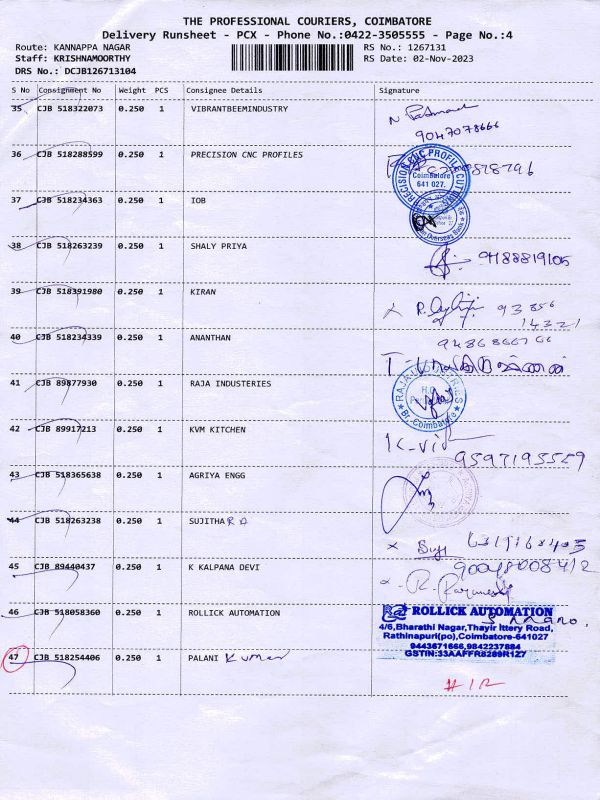 THE PROFESSIONAL COURIERS, COIMBATORE
Delivery Runsheet - PCX - Phone No.:0422-3505555 - Page No.:4
Route: KANNAPPA NAGAR RS No.: 1267131
Staff: KRISHNAMOORTHY RS Date: 02-Nov-2023
DRS No.: DCJB126713104
S No Consignment No Weight PCS Consignee Details Signature
35 CJB 518322073 0.250 1 VIBRANTBEEMINDUSTRY
9047078666
36 CJB 518288599 0.250 1 PRECISION CNC PROFILES
PRECISION CNC PROFILE CUTTING
Coimbatore
641 027.
37 CJB 518234363 0.250 1 IOB
Indian Overseas Bank
38 CJB 518263239 0.250 1 SHALY PRIYA
39 CJB 518391980 0.250 1 KIRAN
93856
14321
40 CJB 518234339 0.250 1 ANANTHAN
41 CJB 89877930 0.250 1 RAJA INDUSTERIES
RAJA INDUSTRIES
H.O
Br. Coimbatore
42 CJB 89917213 0.250 1 KVM KITCHEN
9597195559
43 CJB 518365638 0.250 1 AGRIYA ENGG
44 CJB 518263238 0.250 1 SUJITHA R A
45 CJB 89440437 0.250 1 K KALPANA DEVI
46 CJB 518058360 0.250 1 ROLLICK AUTOMATION
ROLLICK AUTOMATION
4/6,Bharathi Nagar,Thayir Ittery Road,
Rathinapuri(po),Coimbatore-641027
9443671666,9842237884
GSTIN:33AAFFR8289R1Z7
47 CJB 518254406 0.250 1 PALANI Kumar